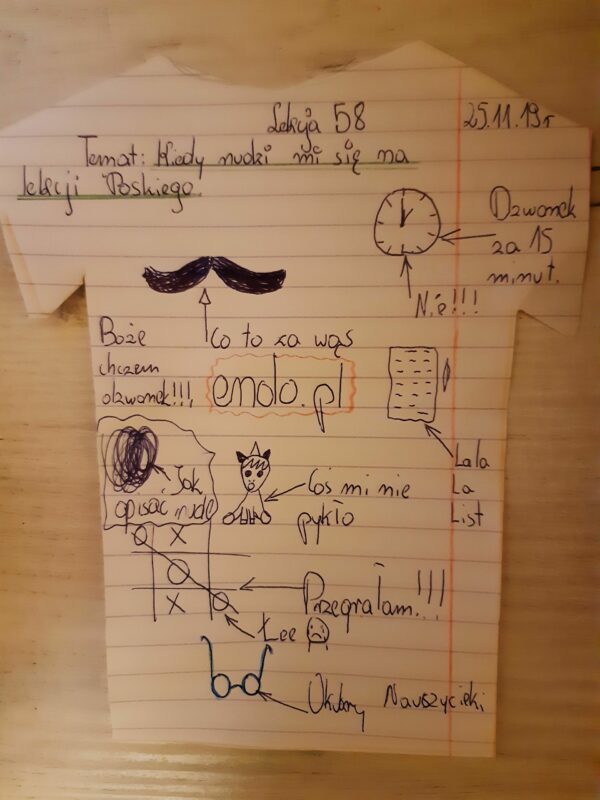 Lekcja 58
25.11.19r
Temat: Kiedy nudzi mi się na
lekcji Poskiego.
Dzwonek
za 15
minut.
Nie!!!
Co to za wąs
Boże
chczem
dzwonek!!!,
endo.pl
Lala
La
List
Jak
opisać nudę
Coś mi nie
pykło
X
X
Przegrałam!!!
Łee
Okulary Nauszycielki